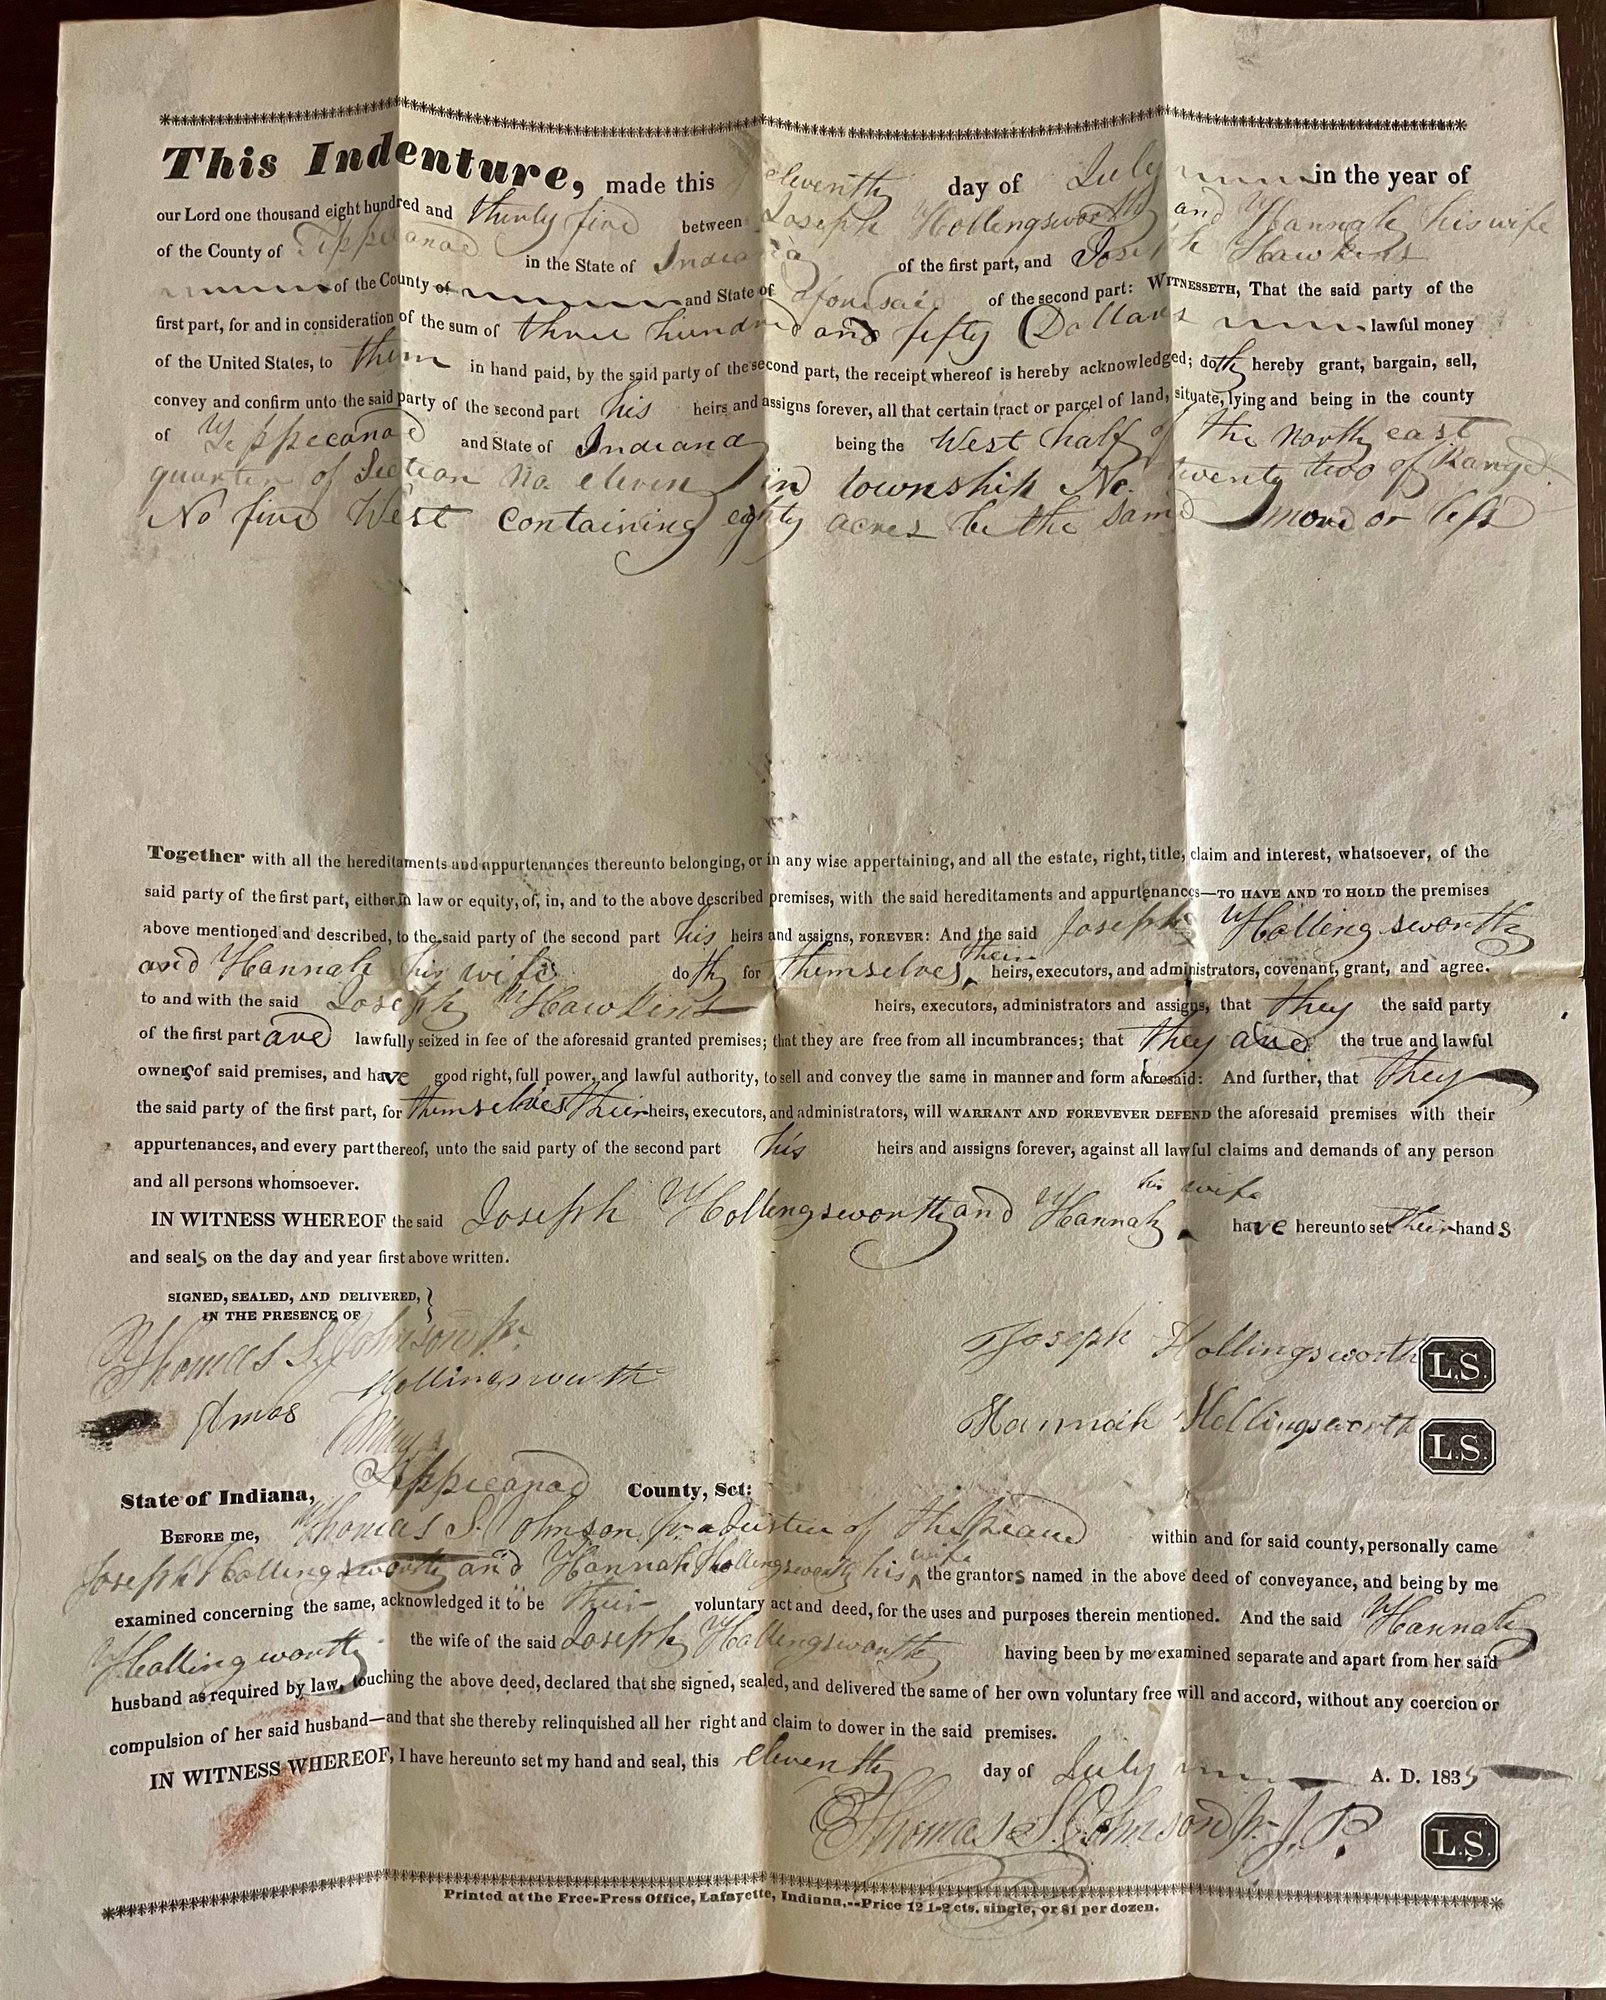 This Indenture, made this eleventh day of July in the year of
our Lord one thousand eight hundred and thirty five between Joseph Hollingsworth and Hannah his wife
of the County of Tippecanoe in the State of Indiana of the first part, and Joseph Hawkins
of the County of and State of aforesaid of the second part: WITNESSETH, That the said party of the
first part, for and in consideration of the sum of three hundred and fifty Dollars lawful money
of the United States, to them in hand paid, by the said party of the second part, the receipt whereof is hereby acknowledged; doth hereby grant, bargain, sell,
convey and confirm unto the said party of the second part his heirs and assigns forever, all that certain tract or parcel of land, situate, lying and being in the county
of Tippecanoe and State of Indiana being the West half of the north east
quarter of Section No eleven in township No. twenty two of Range
No five West containing eighty acres be the same more or less
Together with all the hereditaments and appurtenances thereunto belonging, or in any wise appertaining, and all the estate, right, title, claim and interest, whatsoever, of the
said party of the first part, either in law or equity, of, in, and to the above described premises, with the said hereditaments and appurtenances—TO HAVE AND TO HOLD the premises
above mentioned and described, to the said party of the second part his heirs and assigns, FOREVER: And the said Joseph Hollingsworth
and Hannah his wife doth for themselves, their heirs, executors, and administrators, covenant, grant, and agree.
to and with the said Joseph Hawkins heirs, executors, administrators and assigns, that they the said party
of the first part are lawfully seized in fee of the aforesaid granted premises; that they are free from all incumbrances; that they are the true and lawful
owners of said premises, and have good right, full power, and lawful authority, to sell and convey the same in manner and form aforesaid: And further, that they
the said party of the first part, for themselves their heirs, executors, and administrators, will WARRANT AND FOREVEVER DEFEND the aforesaid premises with their
appurtenances, and every part thereof, unto the said party of the second part his heirs and aissigns forever, against all lawful claims and demands of any person
and all persons whomsoever.
IN WITNESS WHEREOF the said Joseph Hollingsworth and Hannah his wife have hereunto set their hands
and seals on the day and year first above written.
SIGNED, SEALED, AND DELIVERED, }
IN THE PRESENCE OF
Thomas S. Johnson Jr.
Joseph Hollingsworth L.S.
Amos Hollingsworth
Hannah Hollingsworth L.S.
State of Indiana, Tippecanoe County, Sct:
BEFORE me, Thomas S. Johnson Jr. a Justice of the Peace within and for said county, personally came
Joseph Hollingsworth and Hannah Hollingsworth his wife the grantors named in the above deed of conveyance, and being by me
examined concerning the same, acknowledged it to be their voluntary act and deed, for the uses and purposes therein mentioned. And the said Hannah
Hollingworth the wife of the said Joseph Hollingsworth having been by me examined separate and apart from her said
husband as required by law, touching the above deed, declared that she signed, sealed, and delivered the same of her own voluntary free will and accord, without any coercion or
compulsion of her said husband—and that she thereby relinquished all her right and claim to dower in the said premises.
IN WITNESS WHEREOF, I have hereunto set my hand and seal, this eleventh day of July A. D. 1835
Thomas S. Johnson Jr. J. P. L.S.
Printed at the Free-Press Office, Lafayette, Indiana.--Price 12 1-2 cts. single, or $1 per dozen.